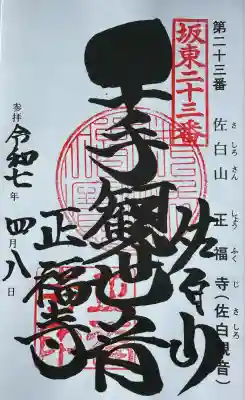 第二十三番
佐白山
正福寺(佐白観音)
さしろさん
しょうふくじ
さしろ
坂東二十三番
佐白山
千手観世音
正福寺
参拝
令和七年四月八日